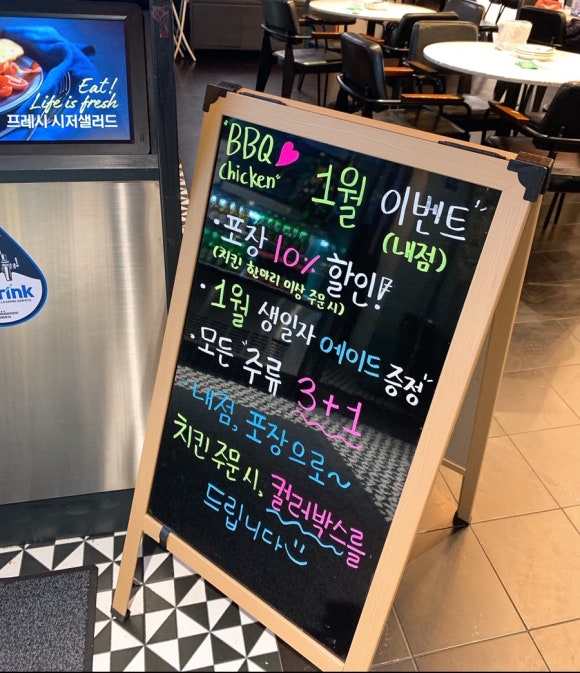 Eat!
Life is fresh
프레시 시저샐러드
rink
BBQ
chicken
1월 이벤트
(내점)
· 포장 10% 할인!
(치킨 한마리 이상 주문시)
· 1월 생일자 에이드 증정"
· 모든 "주류 3+1
내점, 포장으로~
치킨 주문 시, 컬러박스를
드립니다